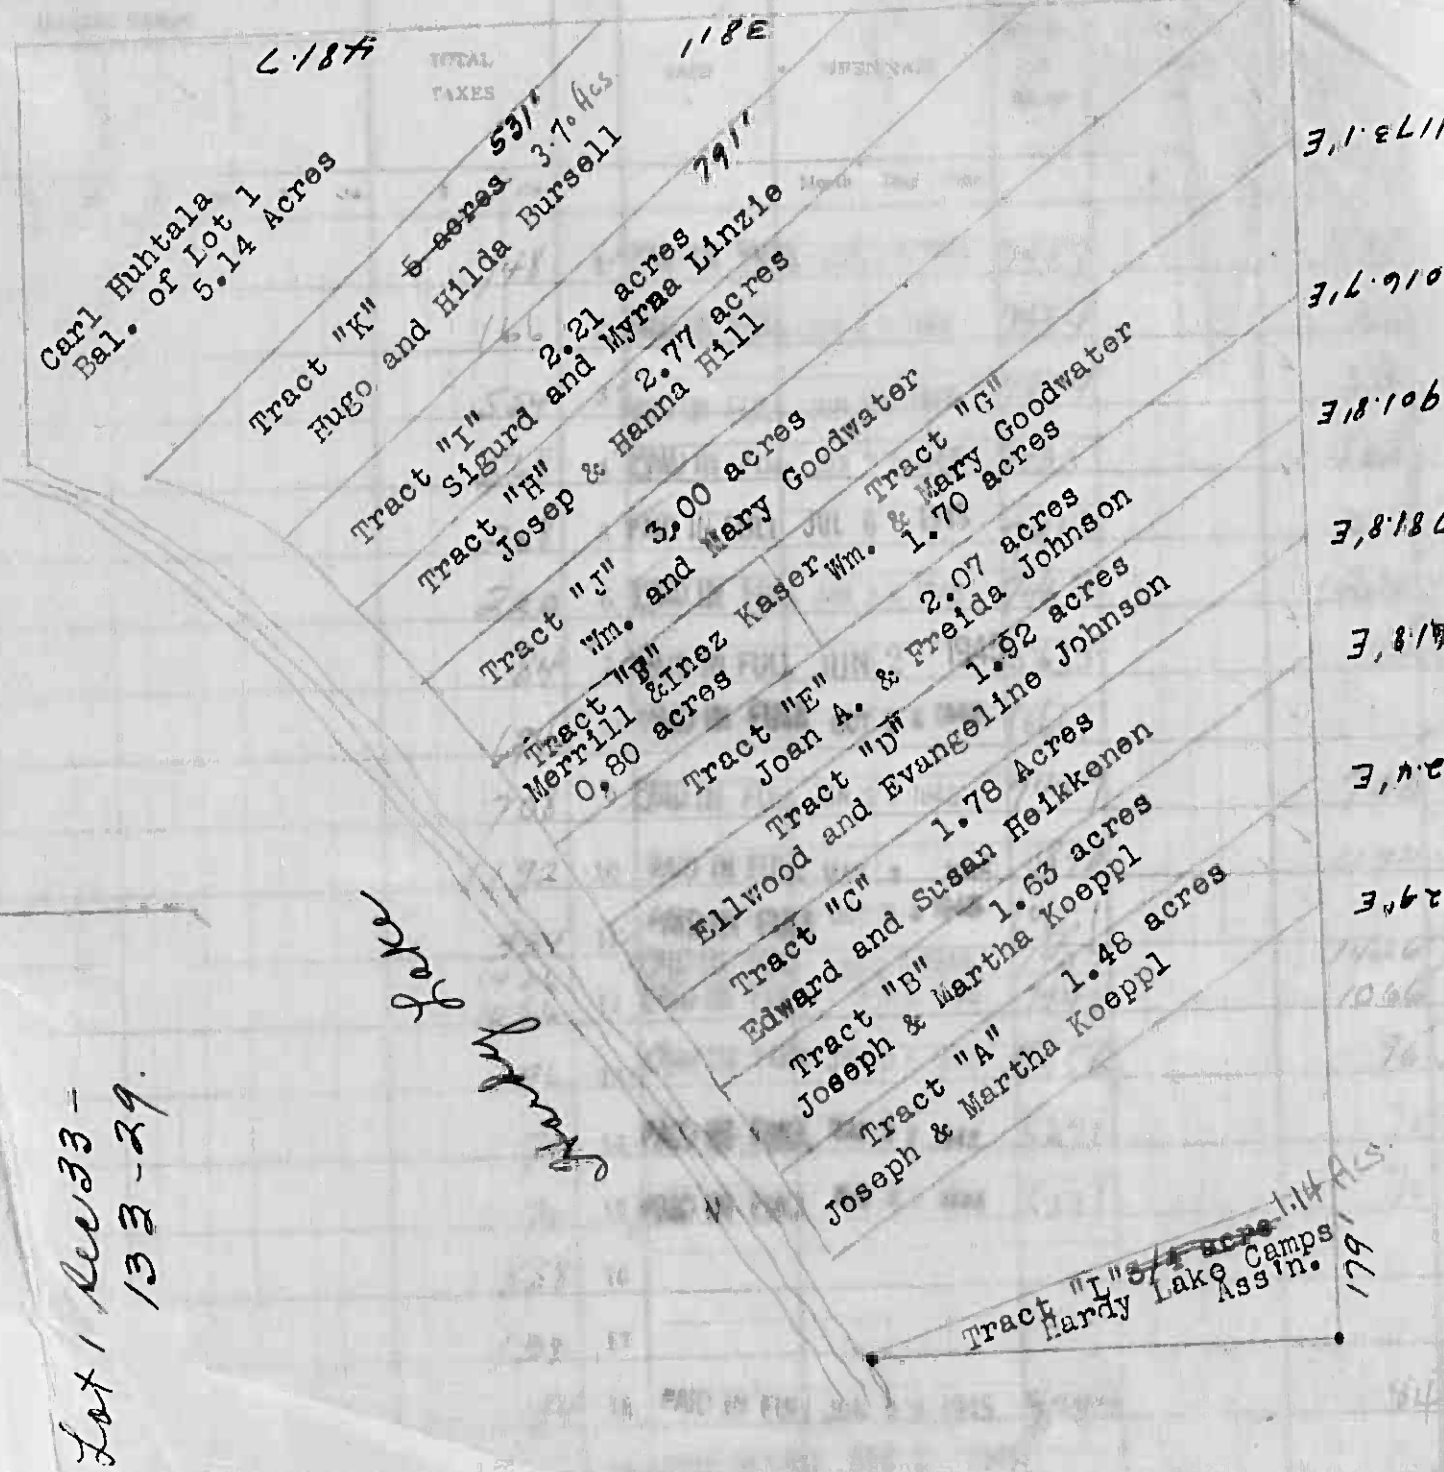 481.7
381'
Carl Huhtala
Bal. of Lot 1
5.14 Acres
531'
Tract "K" 5 acres 3.70 Acs.
Hugo and Hilda Bursell
791'
Tract "I" 2.21 acres
Sigurd and Myrna Linzie
Tract "H" 2.77 acres
Josep & Hanna Hill
Tract "J" 3.00 acres
Wm. and Mary Goodwater
Tract "G"
Wm. & Mary Goodwater
1.70 acres
Tract "F"
Merrill &Inez Kaser
0.80 acres
Tract "E" 2.07 acres
Joan A. & Freida Johnson
Tract "D" 1.92 acres
Ellwood and Evangeline Johnson
Tract "C" 1.78 Acres
Edward and Susan Heikkenen
Tract "B" 1.63 acres
Joseph & Martha Koeppl
Tract "A" 1.48 acres
Joseph & Martha Koeppl
Tract "L" 3/4 acre 1.14 Acs.
Hardy Lake Camps
Ass'n.
179'
1173.1'E
016.7'E
901.8'E
781.8'E
1.8'E
2.4'E
Hardy Lake
Lot 1 Sec 33-
133-29.
TOTAL
TAXES